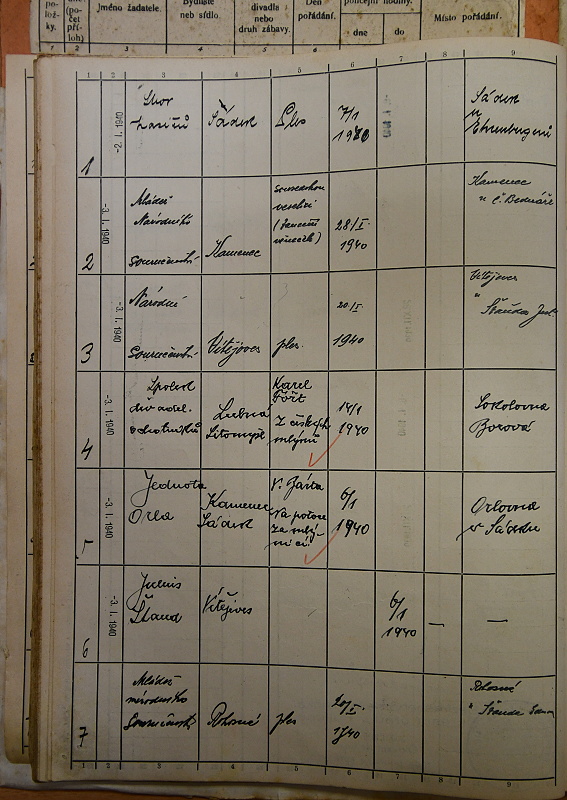 po-
lož-
ky.
(po-
čet
pří-
loh)
Jméno žadatele.
Bydliště
neb sídlo.
divadla
nebo
druh zábavy.
Den
pořádání.
policejní hodiny.
dne
do
Místo pořádání.
1 2 3 4 5 6 7 8 9
1
-2. I. 1940
Sbor
Sádek
Ples
7/1
1940
Sádek
u
2
-3. I. 1940
Mládež
Národního
Souručenství
Kamenec
Sousedskou
veselici
(taneční
věneček)
28/I.
1940
Kamenec
u Č. Bednáře
3
-3. I. 1940
Národní
Souručenství
Vítějeves
ples.
20/I.
1940
Vítějeves
4
-3. I. 1940
Spolek
divadel.
ochotníků
Lubná
Litomyšl
Karel
Fořt
Z českých
mlýnů
14/1
1940
Sokolovna
Borová
5
-3. I. 1940
Jednota
Orla
Kamenec
Sádek
Na potoce
za mlý-
nicí
6/1
1940
Orlovna
v Sádku
6
-3. I. 1940
Julius
Štaud
Vítějeves
6/1
1940
—
—
7
Mládež
národního
Souručenství
Rohozná
ples
20/I.
1940
Rohozná
1 2 3 4 5 6 7 8 9